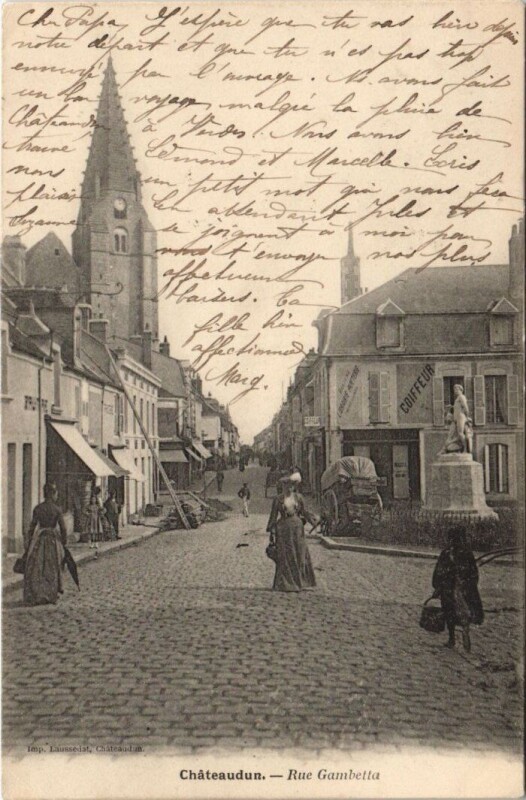 Cher Papa, J'espère que tu vas bien depuis
notre départ et que tu n'es pas trop
ennuyé par l'ouvrage. Ns. avons fait
un bon voyage malgré la pluie de
Châteaudun à Verdes. Nous avons bien
trouvé Edmond et Marcelle. Ecris
nous un petit mot qui nous fera
plaisir. En attendant Jules et
Suzanne se joignent à moi pour
vous t'envoyer nos plus
affectueux
baisers. Ta
fille bien
affectionnée
Marg.
COIFFEUR
Imp. Laussedat, Châteaudun.
Châteaudun. — Rue Gambetta